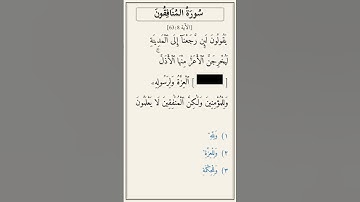 سُورَةُ المُنَافِقُونَ
[الآية 8 :63]
يَقُولُونَ لَئِن رَّجَعْنَآ إِلَى ٱلْمَدِينَةِ
لَيُخْرِجَنَّ ٱلْأَعَزُّ مِنْهَا ٱلْأَذَلَّ ۚ
[ ] ٱلْعِزَّةُ وَلِرَسُولِهِۦ
وَلِلْمُؤْمِنِينَ وَلَٰكِنَّ ٱلْمُنَٰفِقِينَ لَا يَعْلَمُونَ
١) وَلِلَّهِ
٢) وَلِلْعِزَّةِ
٣)